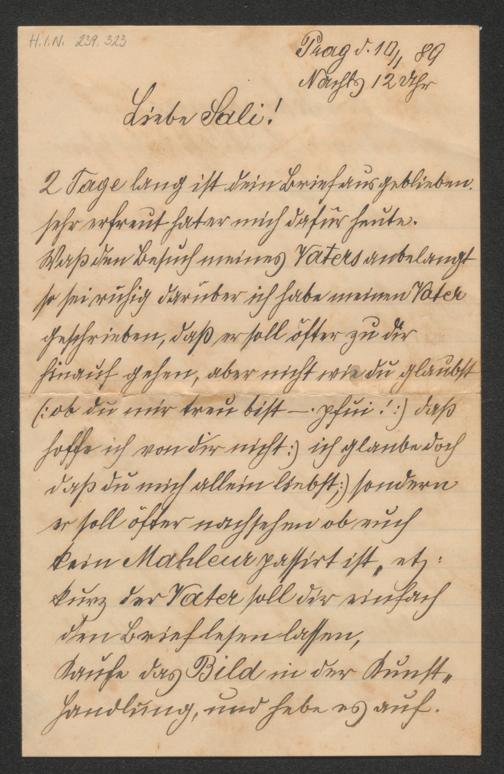 H.I.N. 239.323
Prag d. 10/1 89
Nachts 12 Uhr
Liebe Sali!
2 Tage lang ist dein Brief ausgeblieben.
sehr erfreut hat er mich dafür heute.
Waß den Besuch meines Vaters anbelangt
so sei ruhig darüber ich habe meinen Vater
geschrieben, daß er soll öfter zu dir
hinauf gehen, aber nicht wie du glaubst
(:ob du mir treu bist —. pfui!:) daß
hoffe ich von dir nicht:) ich glaube doch
daß du mich allein liebst;) sondern
er soll öfter nachsehen ob euch
kein Mahleur passirt ist, etz:
kurz der Vater soll dir einfach
den Brief lesen lassen,
Kaufe das Bild in der Kunst„
handlung, und hebe es auf.